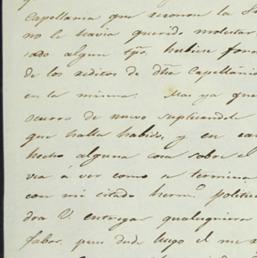 Capellania que reconon la S
no le havia querido molestar
sado algun tpo, hubiese fon
de los reditos de dha Capellania
en la misma: Mas ya que
ocurro de nuevo suplicandole
que halla habido, y en ca
hecho alguna cosa sobre el
via á ver como se termina
con mi citado herm.º politic
dra V. entregar qualquiera
fabor, pues desde luego el me